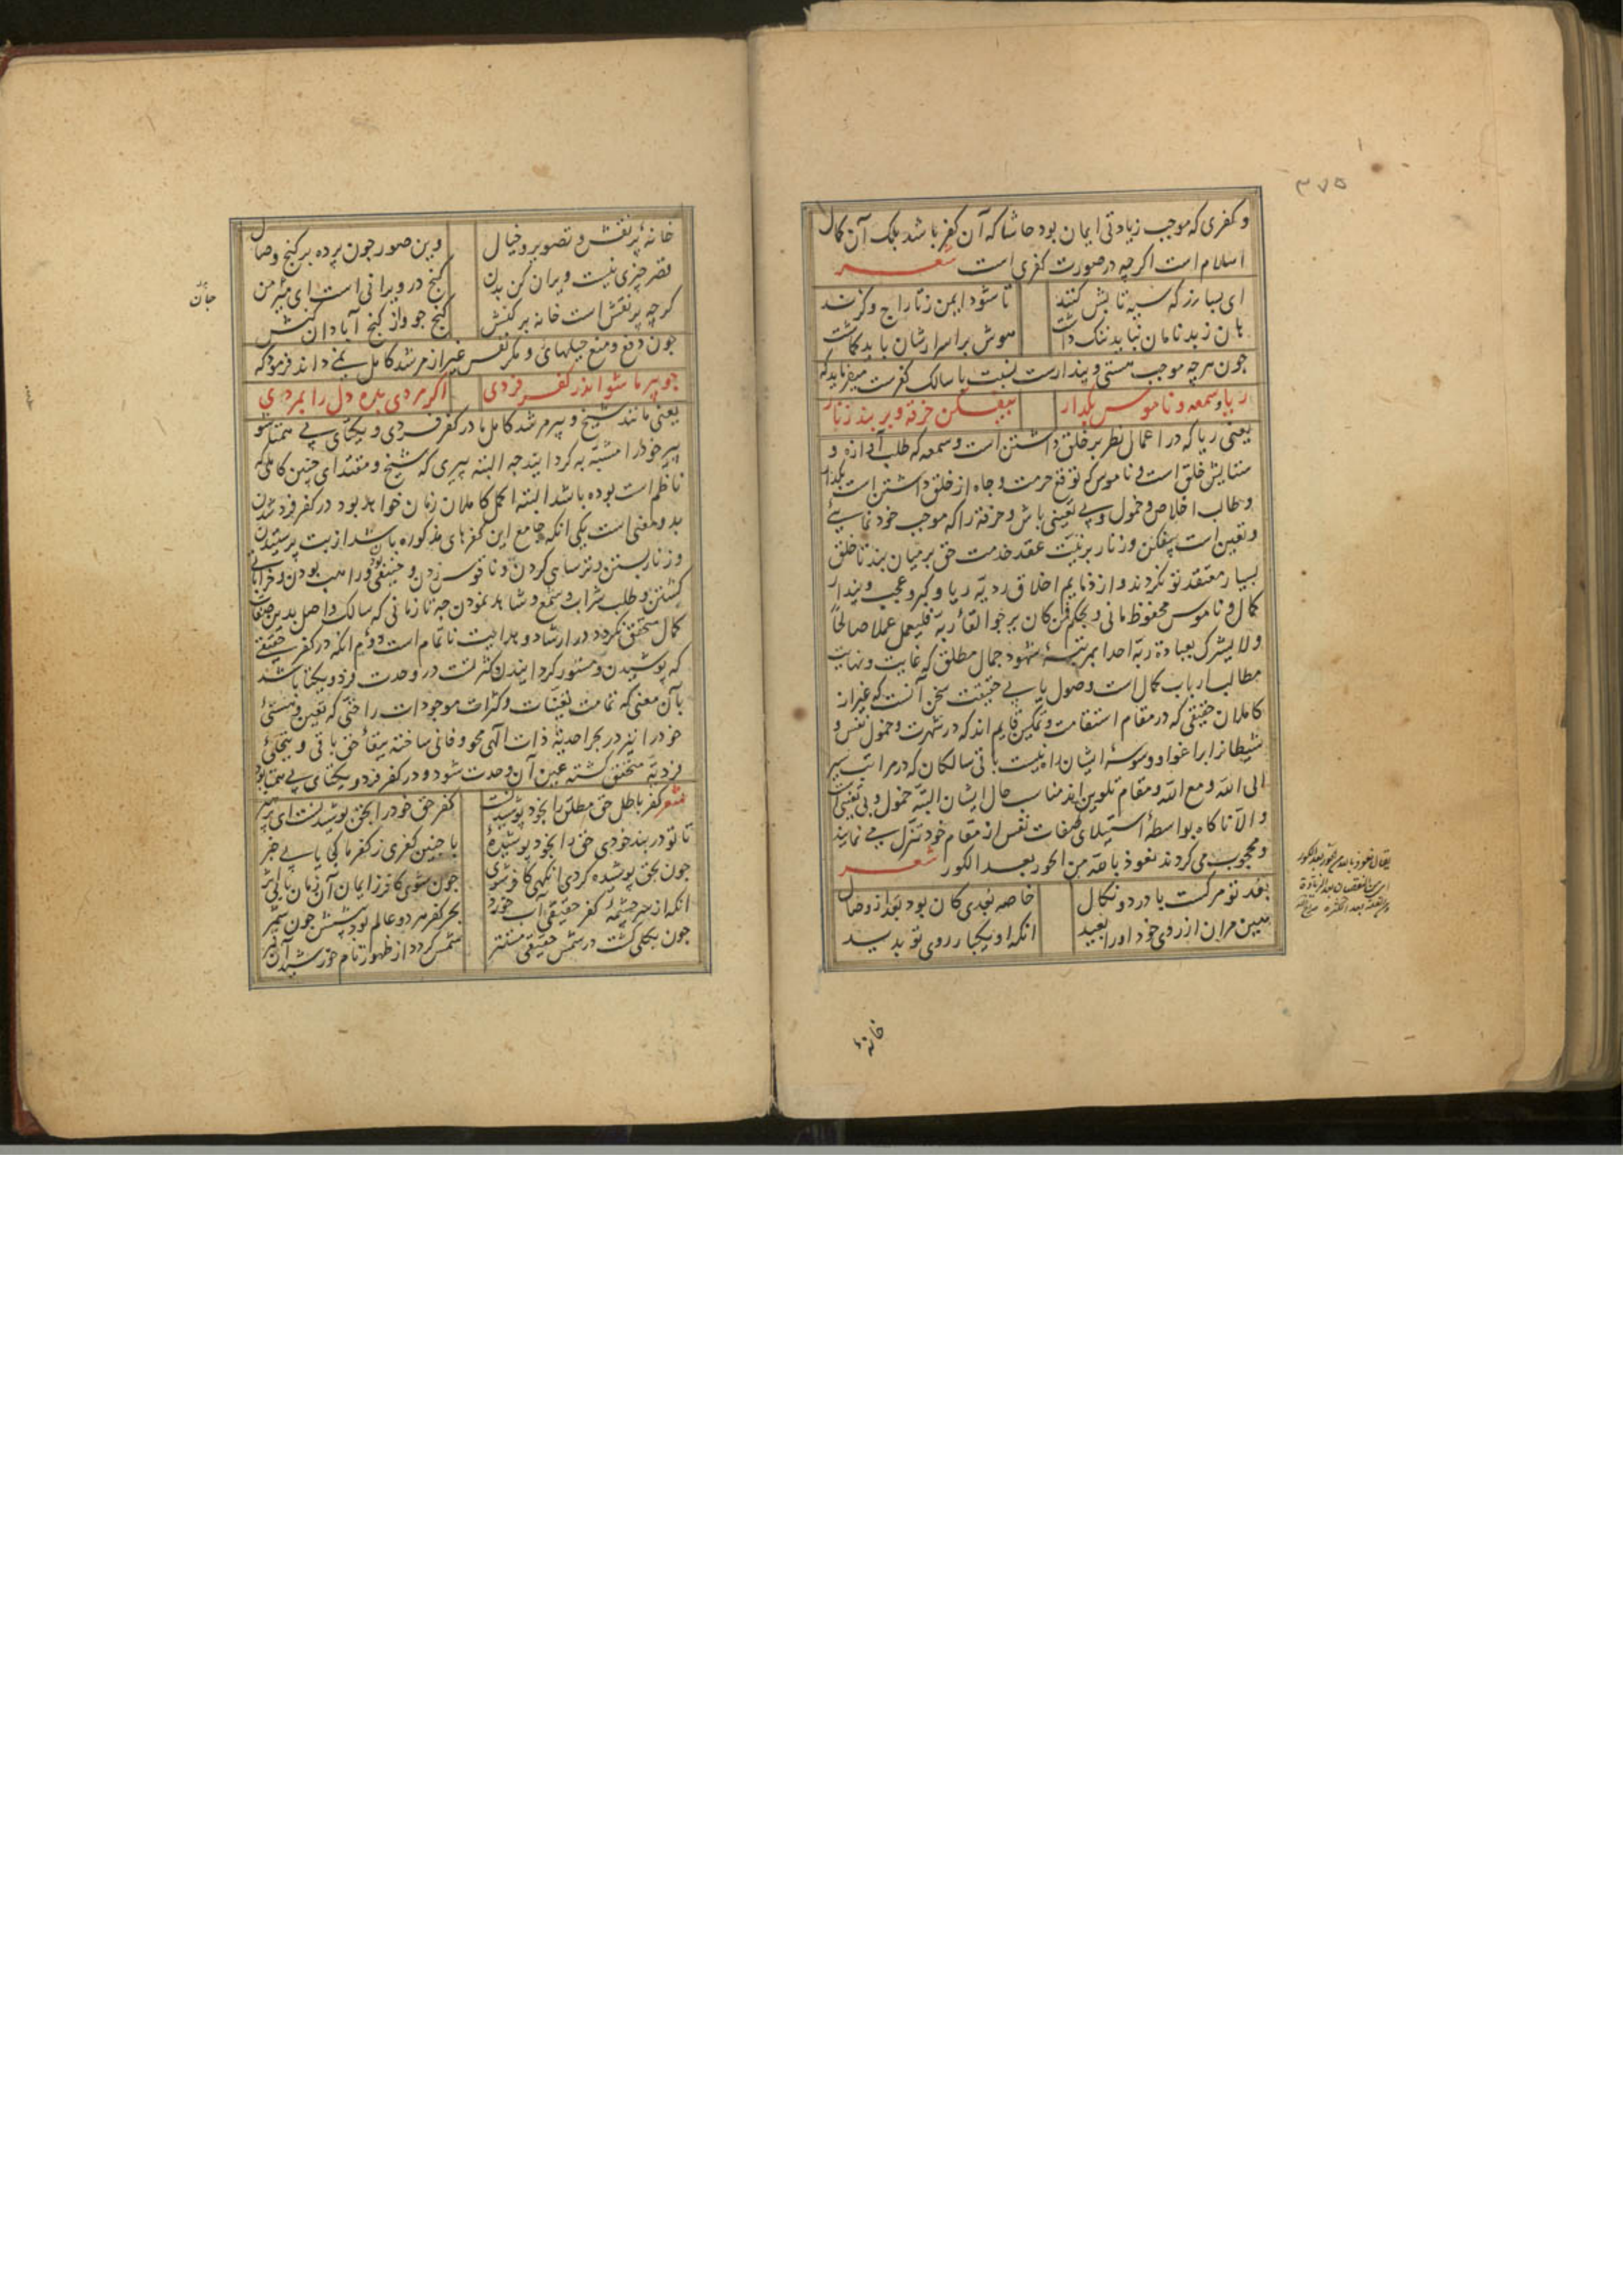 ۳۷۵
و کفری که موجب زیادتی ایمان بود حاشا که آن کفر باشد بلک آن کمال
اسلام است اگرچه در صورت کفری است شعر
ای بسا زر که سیه تابش کنند تا شود ایمن ز تاراج و گزند
هان ز بدنامان نباید ننک داشت هوش بر اسرارشان باید کماشت
جون هرچه موجب هستی و پندارست نسبت با سالک کفرست میفرماید که
ریا و سمعه و ناموس بگذار بیفکن خرقه و بر بند زنار
یعنی ریا که در اعمال نظر بر خلق داشتن است و سمعه که طلب آوازه و
ستایش خلق است و ناموس که توقع حرمت و جاه از خلق داشتن است بگذار
و طالب اخلاص و خمول و بی تعینی باش و خرقه را که موجب خود نمایی
و تعین است بیفکن و زنار بر نیت عقد خدمت حق بر میان بند تا خلق
بسیار معتقد تو نکردند و از ذمایم اخلاق ردیه ریا و کبر و عجب و پندار
کمال و ناموس محفوظ مانی و بحکم فمن کان یرجوا لقاء ربه فلیعمل عملا صالحاً
ولا یشرک بعبادة ربه احدا بمرتبهٔ شهود جمال مطلق که غایت و نهایت
مطالب ارباب کمال است وصول یابی حقیقت سخن آنست که غیر از
کاملان حقیقی که در مقام استقامت و تمکین قایم اند که در شهرت و خمول نفس و
شیطان را بر اغوا و وسوسهٔ ایشان راه نیست باقی سالکان که در مراتب سیر
الی الله و مع الله و مقام تلوین اند مناسب حال ایشان البته خمول و بی تعینی است
و الا ناکاه بواسطهٔ استیلای صفات نفس از مقام خود تنزل می نمایند
و محجوب می کردند نعوذ بالله من الحور بعد الکور شعر
بعد تو مرکست با درد و نکال خاصه بعدی کان بود بعد از وصال
بیین مران از روی خود او را بعید انکه او یکبار روی تو بدید
یقال نعوذ بالله من الحور بعد الکور
ای من النقصان بعد الزیادة
خانهٔ
خانهٔ پر نقش و تصویر و خیال وین صور جون پرده بر کنج وصال
قصر چیزی نیست ویران کن بدن کنج در ویرانی است ای میر من
کرچه پر نقش است خانه برکنش کنج جو واز کنج آبادان کنش
جان
جون دفع و منع حیلهای و مکر نفس غیر از مرشد کامل نمی داند فرمود که
جو پیر ما شو اندر کفر فردی اکر مردی بده دل را بمردی
یعنی مانند شیخ و پیر مرشد کامل ما در کفر فردی و یکتای بی همتا شو
پیر خود را مشبه به کردانید جه البته پیری که شیخ و مقتدای چنین کاملی که
ناظم است بوده باشد البته اکمل کاملان زمان خواهد بود در کفر فرد شدن
بدو معنی است یکی انکه جامع این کفرهای مذکوره باشد از بت پرستیدن
و زنار بستن و ترسایی کردن و ناقوس زدن و حنیفی و راهب بودن و خراباتی
کشتن و طلب شراب و شمع و شاهد نمودن جه تا زمانی که سالک واصل بدین صفات
کمال متحقق نکردد در ارشاد و هدایت ناتمام است دوم انکه در کفر حقیقی
که پوشیدن و مستور کردانیدن کثرتست در وحدت فرد و یکتا باشد
بآن معنی که تمامت تعینات و کثرات موجودات را حتی که تعین و هستی
خود را نیز در بحر احدیهٔ ذات الهی محو و فانی ساخته ببقاء حق باقی و بتجلیٔ
فردیه متحقق کشته عین آن وحدت شود و در کفر فرد و یکتای بی همتا بود
شعر کفر باطل حق مطلق را بخود پوشیدنست کفر حق خود را بحق پوشیدنست ای پسر
تا تو در بند خودی حق را بخود پوشیدهٔ با چنین کفری ز کفر ما کی یابی خبر
جون بحق پوشیده کردی انکهی کافر شوی جون شوی کافر ز ایمان آن زمان یابی اثر
انکه از سرچشمهٔ کفر حقیقی آب خورد بحر کفر هر دو عالم بود پیشش جون شمر
جون بکلی کشت در شمس حقیقی مستتر شمس کردد از ظهور تام خورشید آن قمر